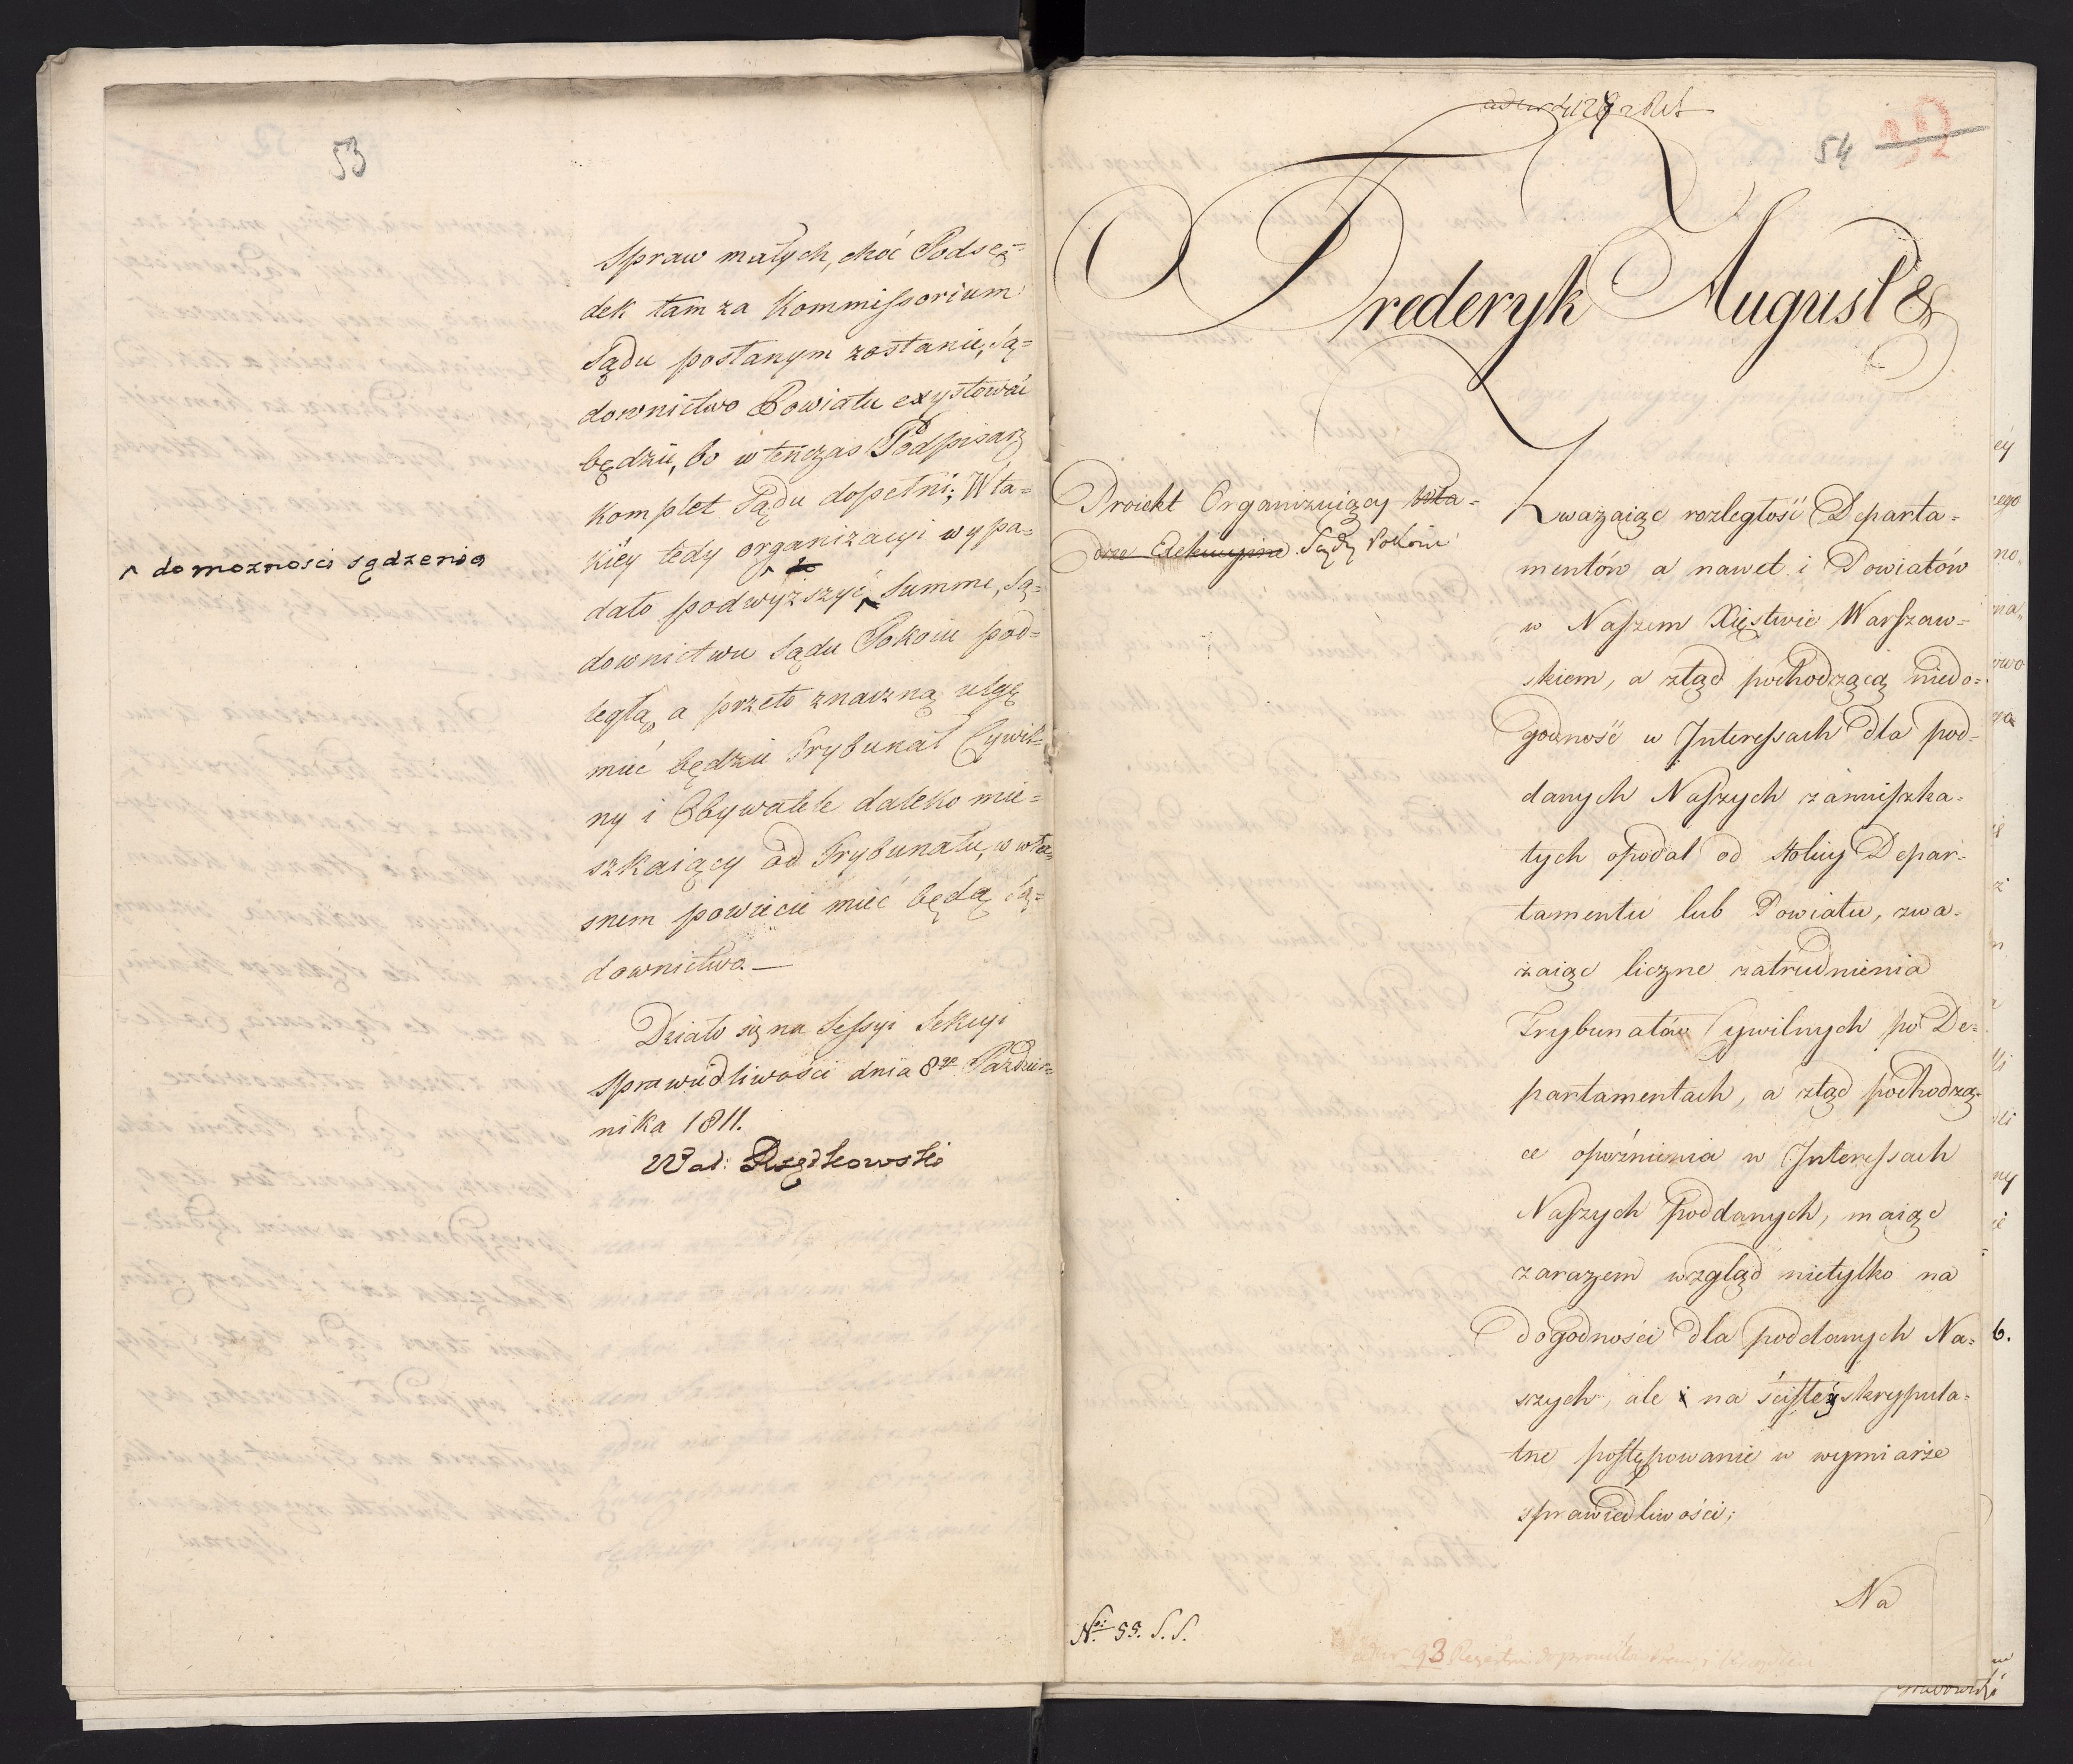 53
spraw małych, choć Podsę=
dek tam za Kommissorium
Sądu posłanym zostanie, Są=
downictwo Powiatu exystować
będzie, bo wtenczas Podpisarz
komplet Sądu dopełni; W ta=
kiéy tedy organizacyi wypa=
dało podwyższyć Summę, Są=
^ do możności sądzenia
downictwu Sądu Pokoiu pod=
ległą, a przeto znaczną ulgę
mieć będzie Trybunał Cywil=
ny i Obywatele daleko mie=
szkaiący od Trybunału, w wła=
snem powiecie mieć będą Są=
downictwo. —
Działo się na Sessyi Sekcyi
Sprawiedliwości dnia 8go Paździer=
nika 1811.
Wal: Rzędkowski
54
Frederyk August &
Proiekt Organizuiący Wła=
dze Exekucyine Sądy Pokoiu
Zważaiąc rozległość Departa=
mentów a nawet i Powiatów
w Naszem Xięstwie Warszaw=
skiem, a ztąd pochodzącą niedo=
godność w Interessach dla pod=
danych Naszych zamieszka=
łych opodal od stolicy Depar=
tamentu lub Powiatu, zwa=
żaiąc liczne zatrudnienia
Trybunałów Cywilnych po De=
partamentach, a ztąd pochodzą=
ce opóźnienia w Interessach
Naszych Poddanych, maiąc
zarazem wzgląd nietylko na
dogodności dla poddanych Na=
szych, ale i na ścisłe y skrypula=
tne postępowanie w wymiarze
sprawiedliwości;
Na
No: 55. S. S.
93